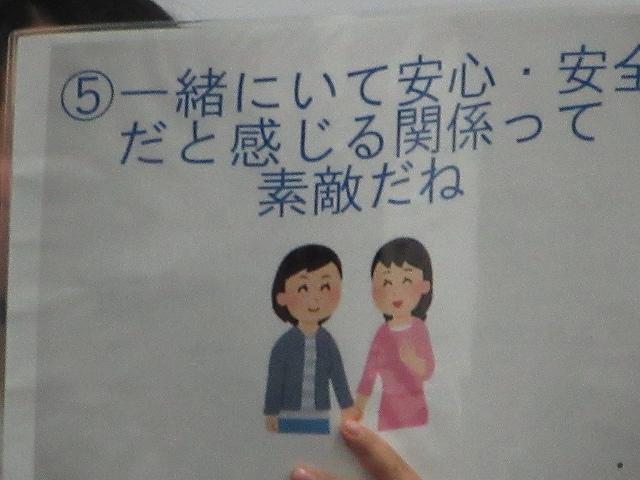 ⑤一緒にいて安心・安全
だと感じる関係って
素敵だね